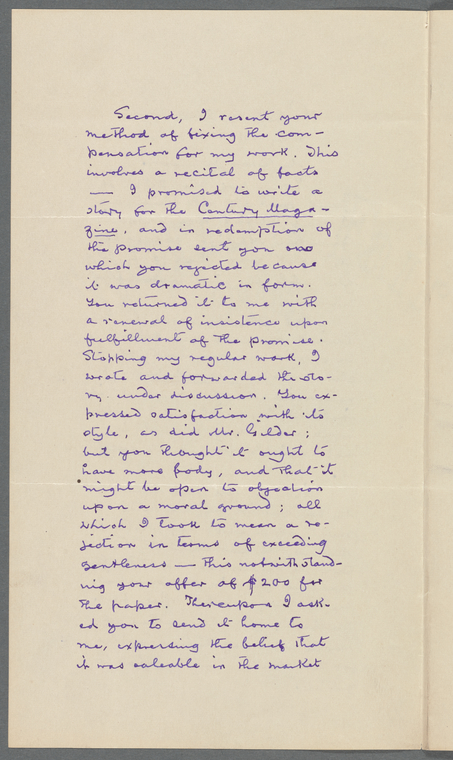 Second, I resent your
method of fixing the com-
pensation for my work. This
involves a recital of facts
— I promised to write a
story for the Century Maga-
zine, and in redemption of
the promise sent you one
which you rejected because
it was dramatic in form.
You returned it to me with
a renewal of insistence upon
fulfillment of the promise.
Stopping my regular work, I
wrote and forwarded the sto-
ry under discussion. You ex-
pressed satisfaction with its
style, as did Mr. Gilder;
but you thought it ought to
have more body, and that it
might be open to objection
upon a moral ground; all
which I took to mean a re-
jection in terms of exceeding
gentleness — this notwithstand-
ing your offer of $200 for
the paper. Thereupon I ask-
ed you to send it home to
me, expressing the belief that
it was saleable in the market